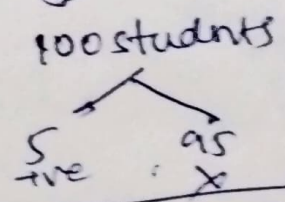 100 studnts
5 95
+ve x